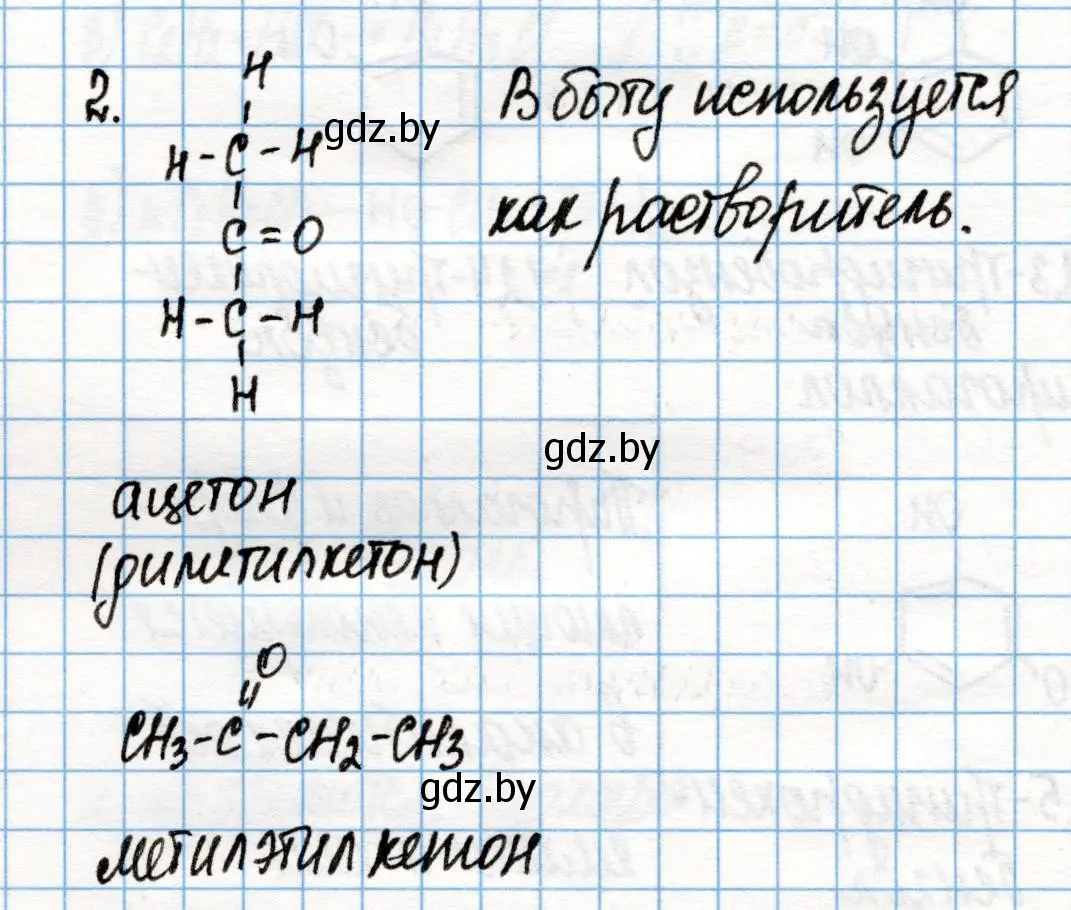 2.
H
H-C-H
C=O
H-C-H
H
В быту используется
как растворитель.
gdz.by
gdz.by
ацетон
(диметилкетон)
O
CH3-C-CH2-CH3
gdz.by
метилэтил кетон